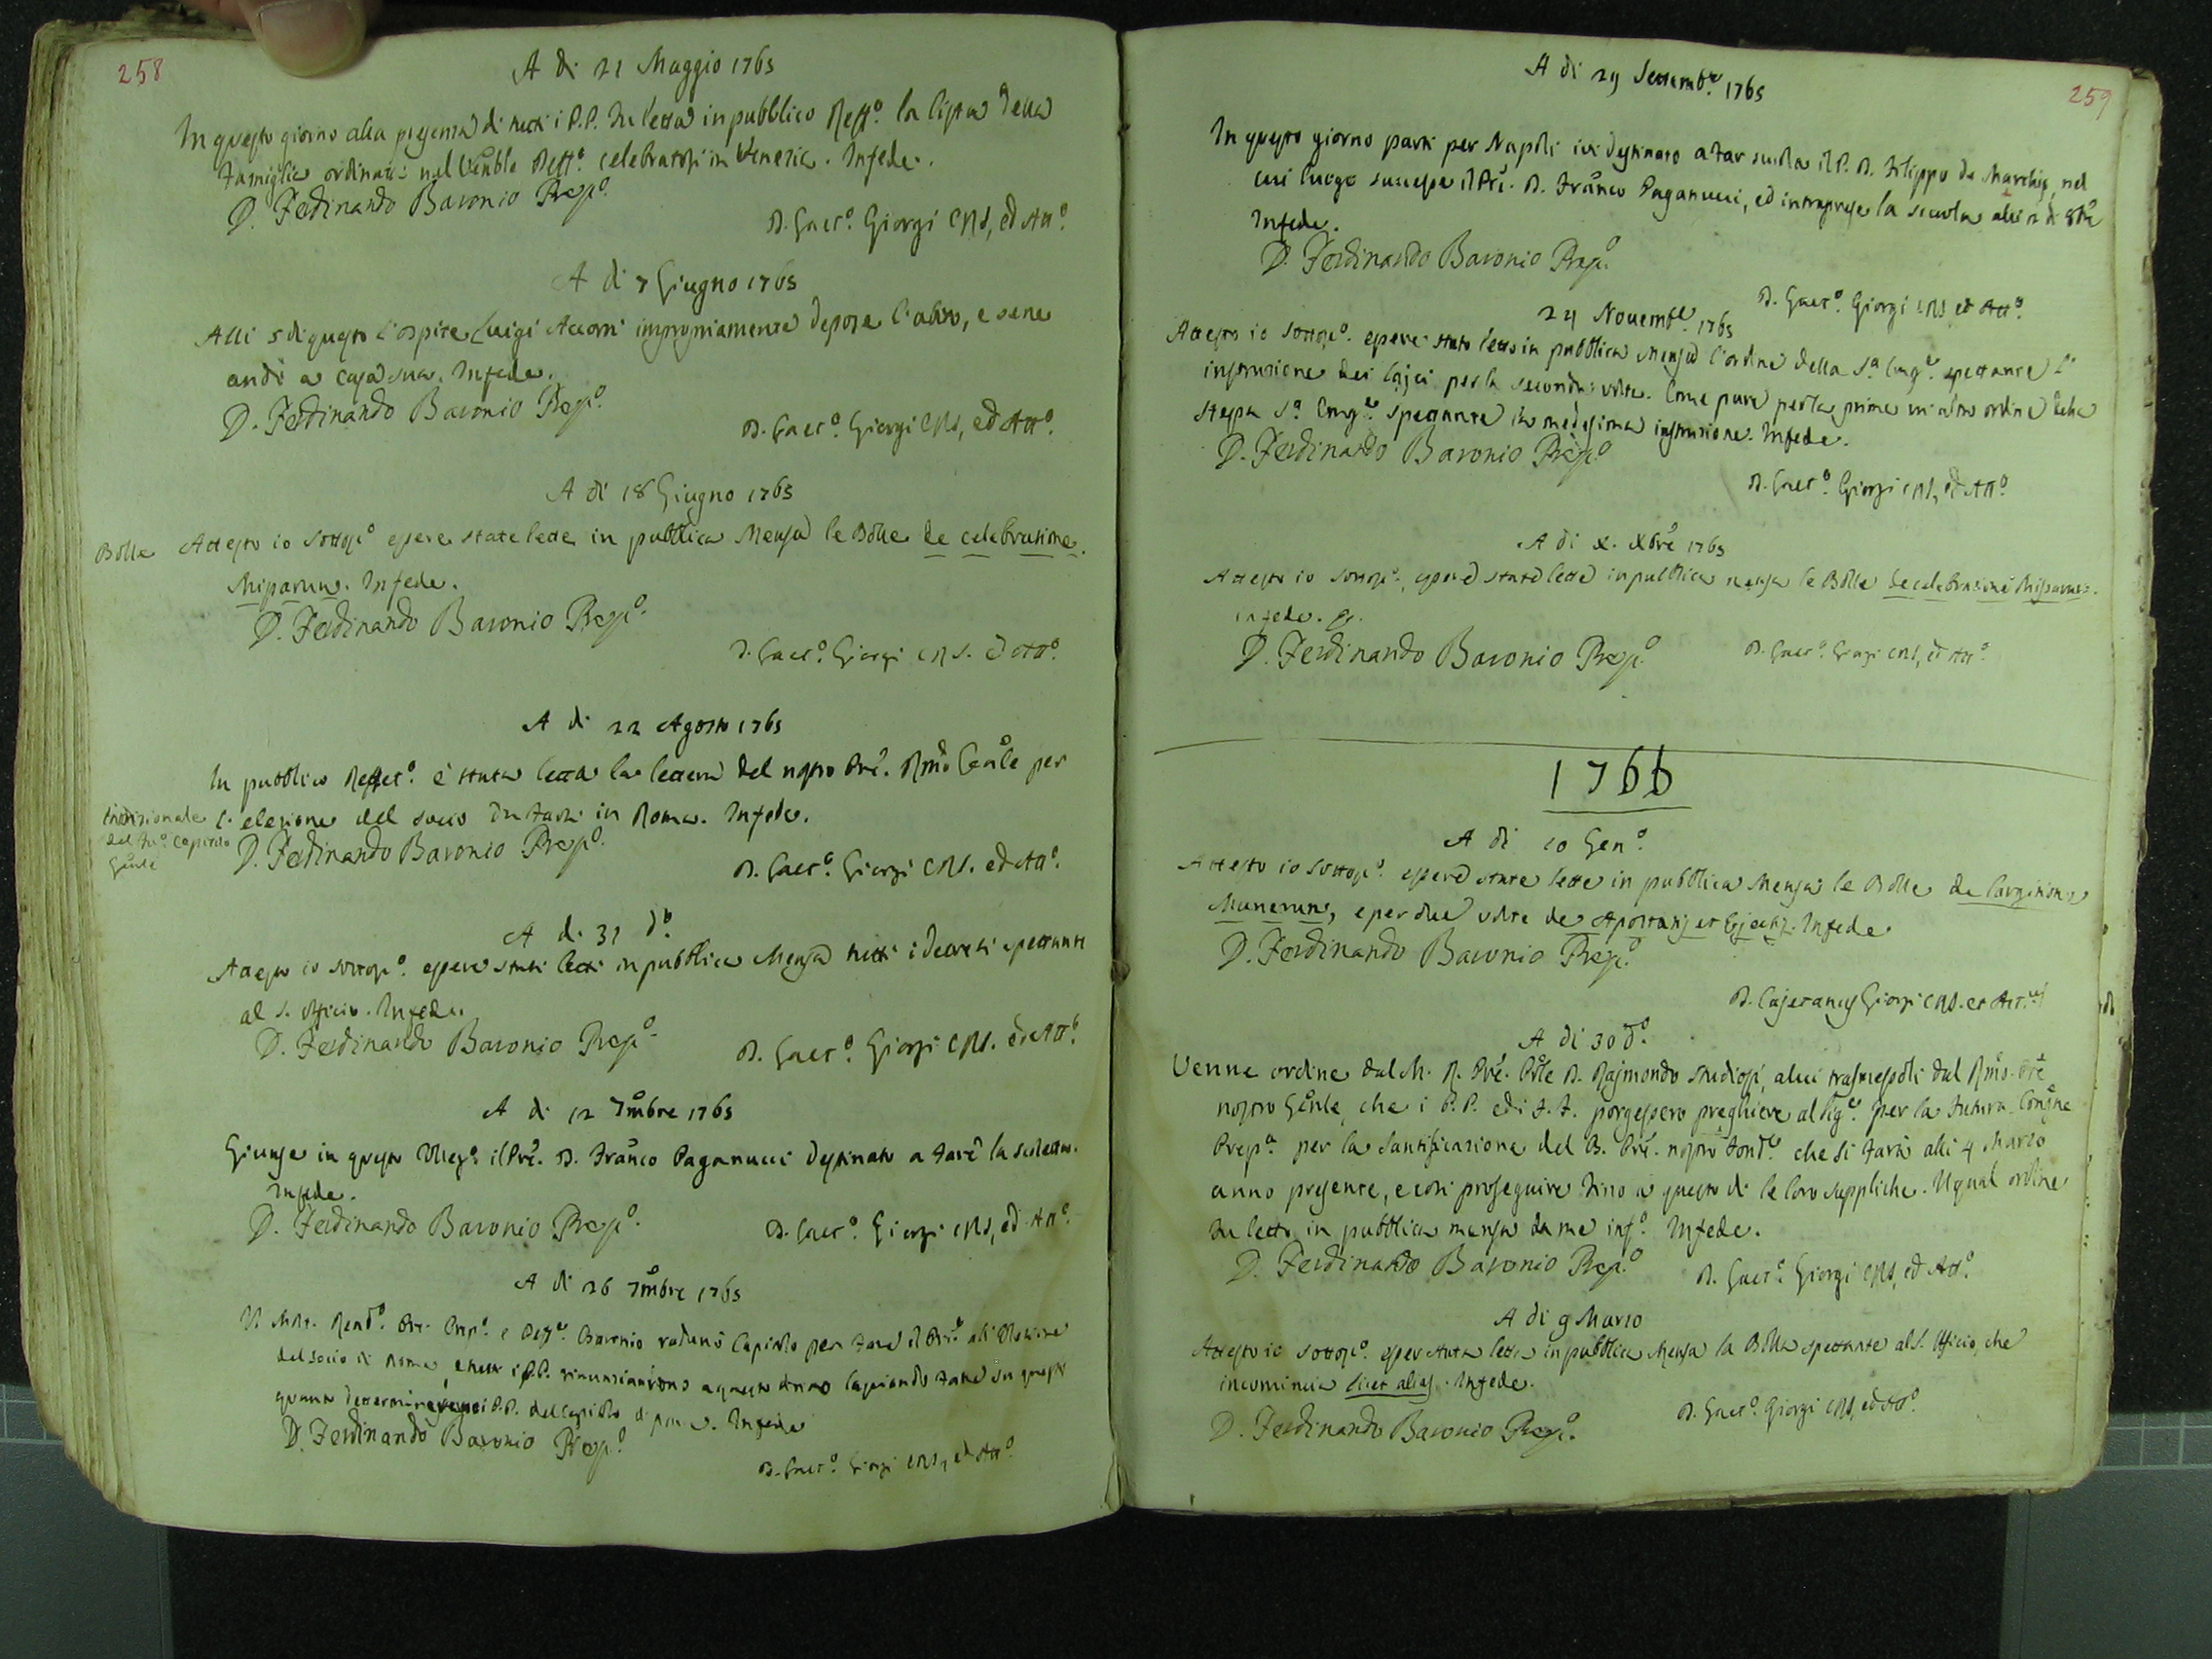 258
A di 21 Maggio 1765
In questo giorno alla presenza di tutti i P.P. fu letta in pubblico Reff.º la lista della
famiglia ordinata nel Venble Deff.º celebratosi in Venezia. In fede.
D. Ferdinando Baronio Prep.º
D. Gaet.º Giorgi CRS, ed Att.º
A di 7 Giugno 1765
Alli 5 di questo l'ospite Luigi impropriamente depose l'abito, e sene
andò a casa sua. In fede.
D. Ferdinando Baronio Prep.º
D. Gaet.º Giorgi CRS, ed Att.º
A di 18 Giugno 1765
Bolle
Attesto io sottos.º essere state lette in pubblica Mensa le Bolle de celebratione
Missarum. In fede.
D. Ferdinando Baronio Prep.º
D. Gaet.º Giorgi CRS. ed Att.º
A di 22 Agosto 1765
In pubblico Reffet.º è stata letta la lettera del nostro Prē. Rm̃o Gēnle per
l'elezione del socio da farsi in Roma. In fede.
del fu.º Capitolo
Gēnle
D. Ferdinando Baronio Prep.º
D. Gaet.º Giorgi CRS. ed Att.º
A di 31 d.º
Attesto io sottos.º essere stati letti in pubblica Mensa tutti i decreti spettanti
al S. Officio. In fede.
D. Ferdinando Baronio Prep.º
D. Gaet.º Giorgi CRS. ed Att.º
A di 12 7mbre 1765
Giunse in questo Colleg.º il Prē. D. Franco Paganucci destinato a fare la scoletta.
In fede.
D. Ferdinando Baronio Prep.º
D. Gaet.º Giorgi CRS, ed Att.º
A di 26 7mbre 1765
Il Mto. Rend.º Pre. Prep.º e Baronio radunò Capitolo per fare il
del socio di Roma, e tutti i P.P. rinunciarono a questo lasciando fare su questo
quanto i P.P. del Capitolo di In fede
D. Ferdinando Baronio Prep.º
D. Gaet.º Giorgi CRS, ed Att.º
259
A di 29 Settemb.e 1765
In questo giorno partì per Napoli ivi destinato a far scuola il P. D. Filippo de Marchis, nel
cui luogo successe il Prē. D. Franco Paganucci, ed intraprese la scuola alli 2 di 8bre
In fede.
D. Ferdinando Baronio Prep.º
D. Gaet.º Giorgi CRS ed Att.º
24 Novemb.e 1765
Attesto io sottos.º essere stato letto in pubblica Mensa l'ordine della S.a Cong.e spettante l'
instruzione dei laici per la seconda volta. Come pure per la prima un altro ordine della
stessa S.a Cong.e spettante la medesima instruzione. In fede.
D. Ferdinando Baronio Prep.º
D. Gaet.º Giorgi CRS, ed Att.º
A di Xbre 1765
Attesto io sottos.º essere state lette in pubblica mensa le Bolle de celebratione Missarum.
in fede.
D. Ferdinando Baronio Prep.º
D. Gaet.º Giorgi CRS, ed Att.º
1766
A di 10 Gen.º
Attesto io sottos.º essere state lette in pubblica Mensa le Bolle de largitione
Munerum, e per due volte de Apostatis et Ejectis. In fede
D. Ferdinando Baronio Prep.º
D. Cajetanus Giorgi CRS. et Act.us
A di 30 d.º
Venne ordine dal M. R. Prē. Prōle D. Rajmondo Studiosi, a lui trasmessoli dal Rm̃o Prē
nostro Gēnle, che i P.P. ed i F.F. porgessero preghiere al Sig.e per la futura Congne
Prep.a per la Santificazione del B. Prē. nostro Fond.e che si farà alli 4 Marzo
anno presente, e così proseguire fino a questo di le loro suppliche. Ugual ordine
fu letto in pubblica mensa da me inf.º In fede.
D. Ferdinando Baronio Prep.º
D. Gaet.º Giorgi CRS, ed Att.º
A di 9 Marzo
Attesto io sottos.º esser stata letta in pubblica Mensa la Bolla spettante al S. Officio, che
incomincia licet alias. In fede.
D. Ferdinando Baronio Prep.º
D. Gaet.º Giorgi CRS, ed Att.º